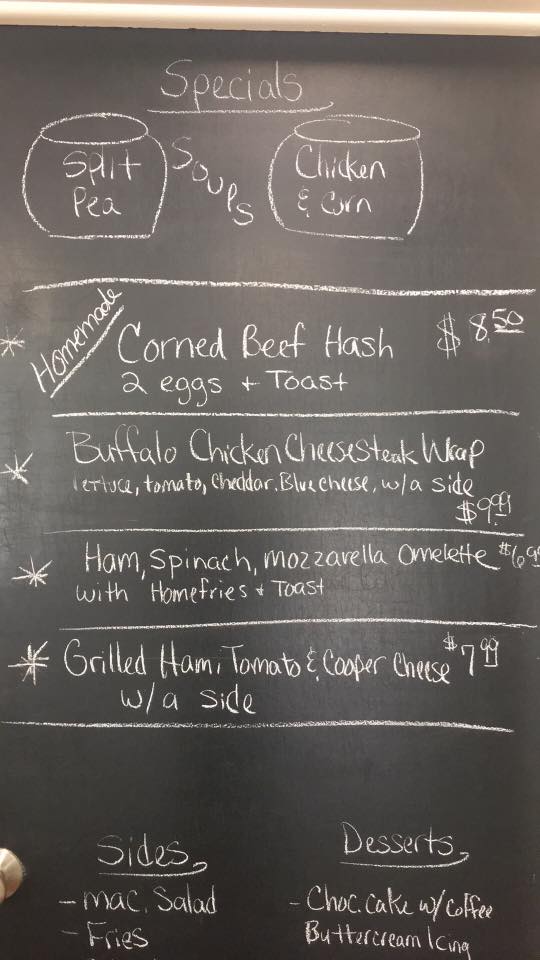 Specials
Split
Pea
Soups
Chicken
& Corn
Homemade
Corned Beef Hash $8.50
2 eggs + Toast
Buffalo Chicken Cheesesteak Wrap
lettuce, tomato, Cheddar, Blue cheese, w/a side
$9.99
Ham, Spinach, mozzarella omelette $6.99
with Homefries + Toast
Grilled Ham, Tomato & Cooper Cheese $7.99
w/a side
Sides
- mac. Salad
- Fries
Desserts
- Choc. cake w/ coffee
Buttercream Icing